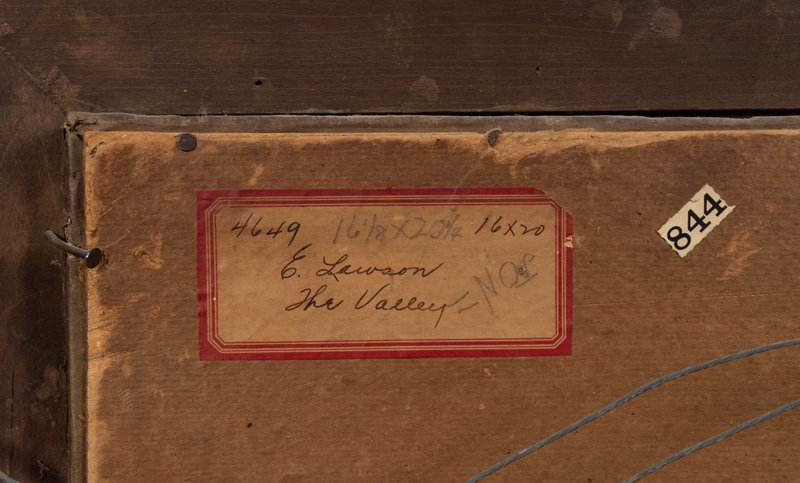 4649 16 1/8 X 20 1/4 16 X 20
E. Lawson
The Valley
844